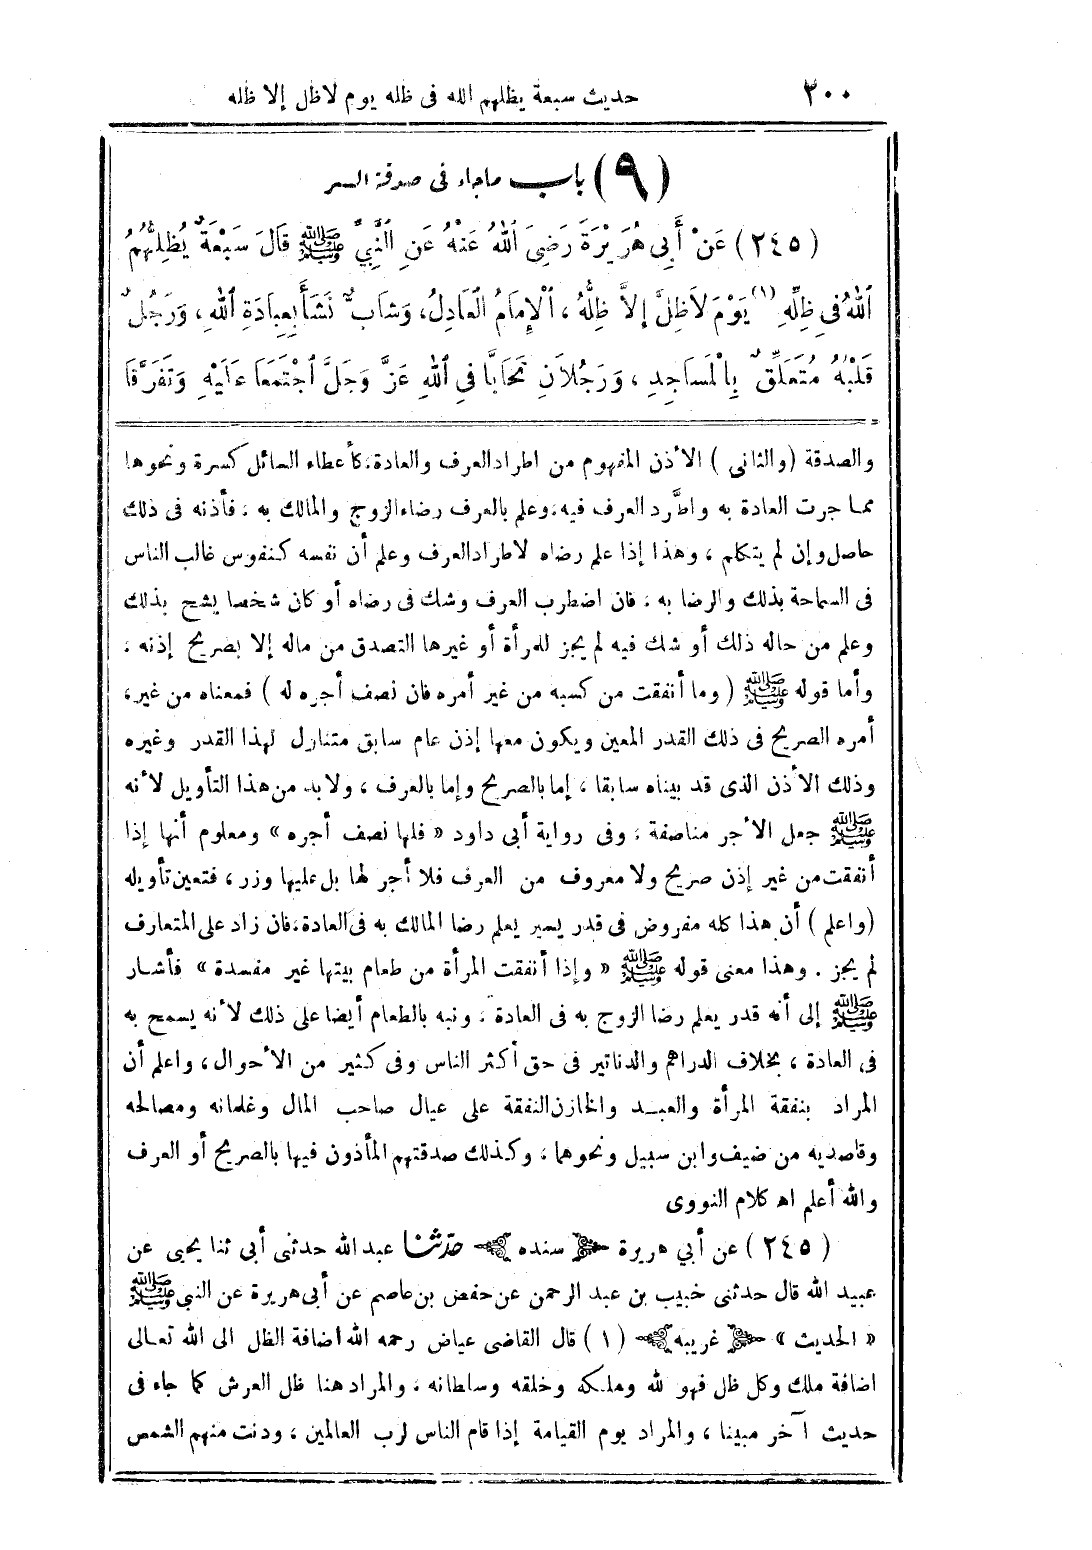 ٢٠٠ حديث سبعة يظلهم الله فى ظله يوم لاظل إلا ظله
(٩) باب ماجاء فى صدقة السر
(٢٤٥) عَنْ أَبِى هُرَيْرَةَ رَضِىَ اللهُ عَنْهُ عَنِ النَّبِيِّ ﷺ قَالَ سَبْعَةٌ يُظِلُّهُمُ
اللهُ فِى ظِلِّهِ (١) يَوْمَ لَاظِلَّ إِلاَّ ظِلُّهُ، اَلْإِمَامُ الْعَادِلُ، وَشَابٌّ نَشَأَ بِعِبَادَةِ اللهِ، وَرَجُلٌ
قَلْبُهُ مُتَعَلِّقٌ بِالْمَسَاجِدِ، وَرَجُلَانِ تَحَابَّا فِى اللهِ عَزَّ وَجَلَّ اجْتَمَعَا عَلَيْهِ وَتَفَرَّقَا
والصدقة (والثانى) الأذن المفهوم من اطرادالعرف والعادة، كأعطاء السائل كسرة ونحوها
مما جرت العادة به واطَّرد العرف فيه، وعلم بالعرف رضاءالزوج والمالك به، فأذنه فى ذلك
حاصل وإن لم يتكلم، وهذا إذا علم رضاه لاطرادالعرف وعلم أن نفسه كنفوس غالب الناس
فى السماحة بذلك والرضا به، فان اضطرب العرف وشك فى رضاه أو كان شخصا يشح بذلك
وعلم من حاله ذلك أو شك فيه لم يجز للمرأة أو غيرها التصدق من ماله إلا بصريح إذنه،
وأما قوله ﷺ (وما أنفقت من كسبه من غير أمره فان نصف أجره له) فمعناه من غير،
أمره الصريح فى ذلك القدر المعين ويكون معها إذن عام سابق متناول لهذا القدر وغيره
وذلك الأذن الذى قد بيناه سابقا، إما بالصريح وإما بالعرف، ولابد من هذا التأويل لأنه
ﷺ جعل الأجر مناصفة، وفى رواية أبى داود «فلها نصف أجره» ومعلوم أنها إذا
أنفقت من غير إذن صريح ولا معروف من العرف فلا أجر لها بل عليها وزر، فتعين تأويله
(واعلم) أن هذا كله مفروض فى قدر يسير يعلم رضا المالك به فى العادة، فان زاد على المتعارف
لم يجز. وهذا معنى قوله ﷺ «وإذا أنفقت المرأة من طعام بيتها غير مفسدة» فأشار
ﷺ إلى أنه قدر يعلم رضا الزوج به فى العادة، ونبه بالطعام أيضا على ذلك لأنه يسمح به
فى العادة، بخلاف الدراهم والدنانير فى حق أكثر الناس وفى كثير من الأحوال، واعلم أن
المراد بنفقة المرأة والعبد والخازن النفقة على عيال صاحب المال وغلمانه ومصالحه
وقاصديه من ضيف وابن سبيل ونحوهما، وكذلك صدقتهم المأذون فيها بالصريح أو العرف
والله أعلم اه كلام النووى
(٢٤٥) عن أبي هريرة ﴿سنده﴾ حدّثنا عبد الله حدثنى أبى ثنا يحيى عن
عبيد الله قال حدثنى خبيب بن عبد الرحمن عن حفص بن عاصم عن أبى هريرة عن النبي ﷺ
«الحديث» ﴿غريبه﴾ (١) قال القاضى عياض رحمه الله اضافة الظل الى الله تعالى
اضافة ملك وكل ظل فهو لله وملكه وخلقه وسلطانه، والمراد هنا ظل العرش كما جاء فى
حديث آخر مبينا، والمراد يوم القيامة إذا قام الناس لرب العالمين، ودنت منهم الشمس